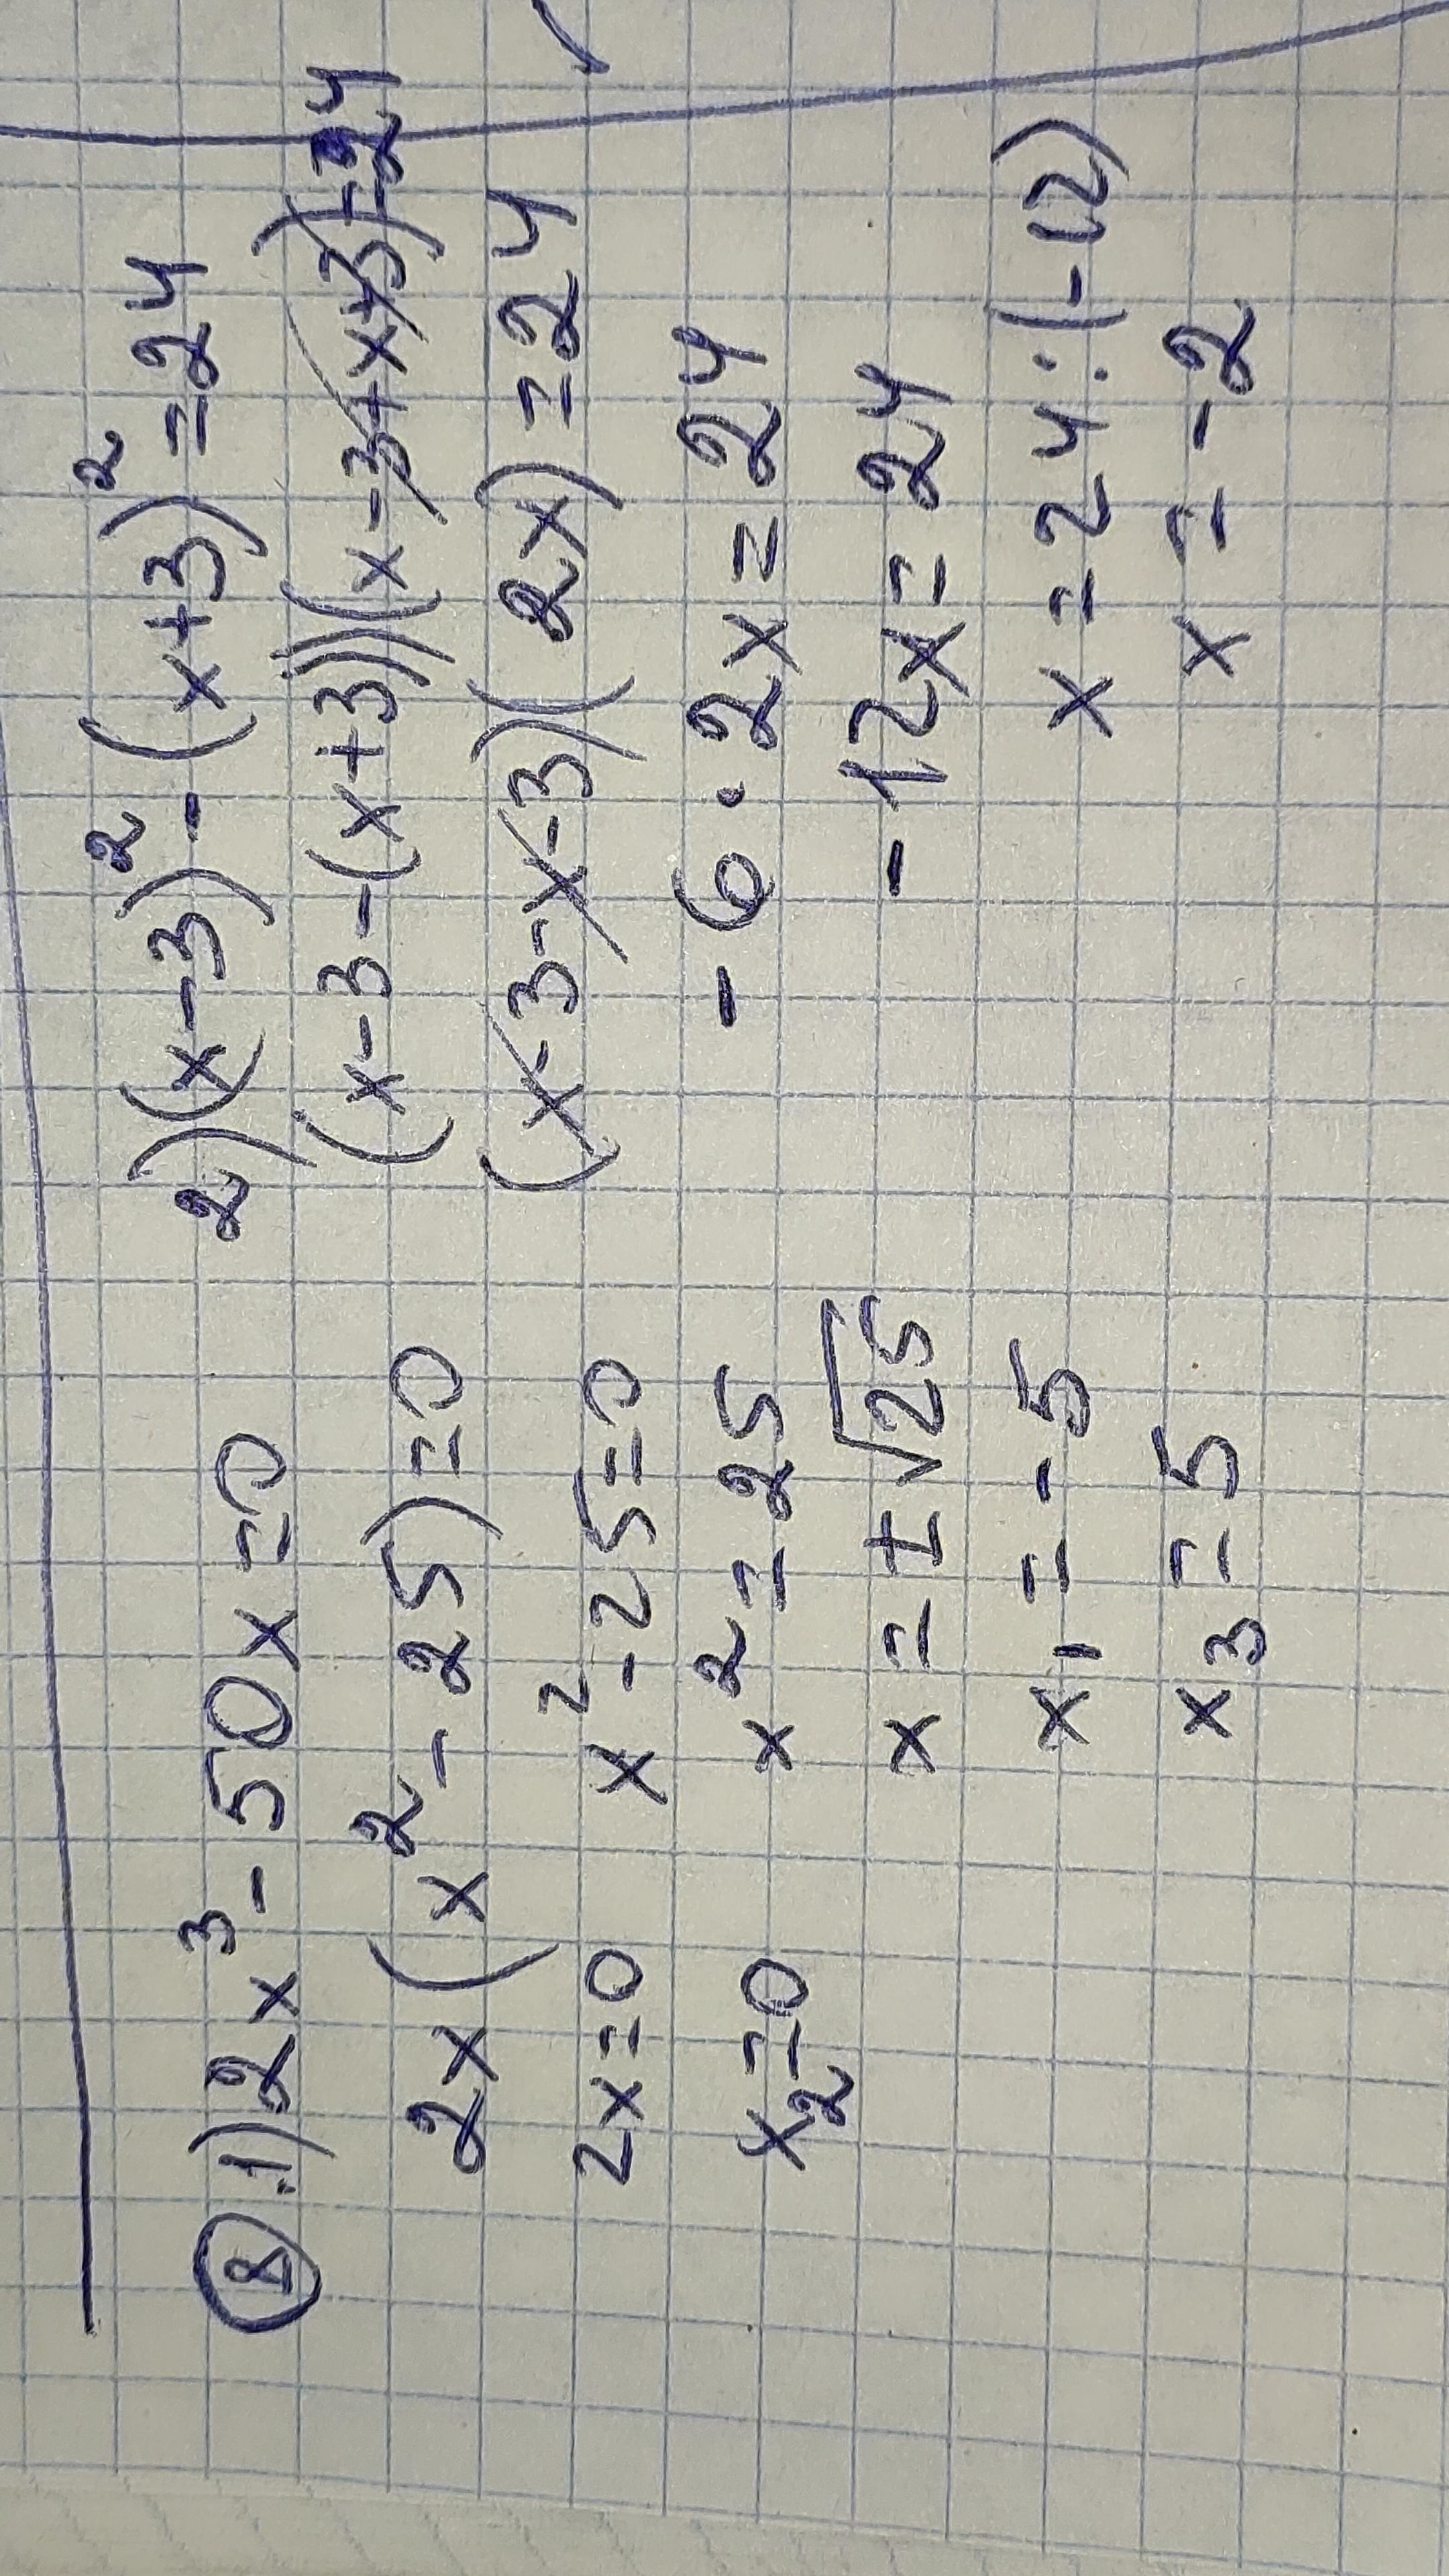 ② 1) 2x³ - 50x = 0
2x (x² - 25) = 0
2x = 0 x² - 25 = 0
x₂ = 0 x² = 25
x = ± √25
x₁ = - 5
x₃ = 5
2) (x - 3)² - (x + 3)² = 24
(x - 3 - (x + 3))(x - 3 + x + 3) = 24
(x - 3 - x - 3)( 2x) = 24
- 6 · 2x = 24
- 12x = 24
x = 24 : (- 12)
x = - 2